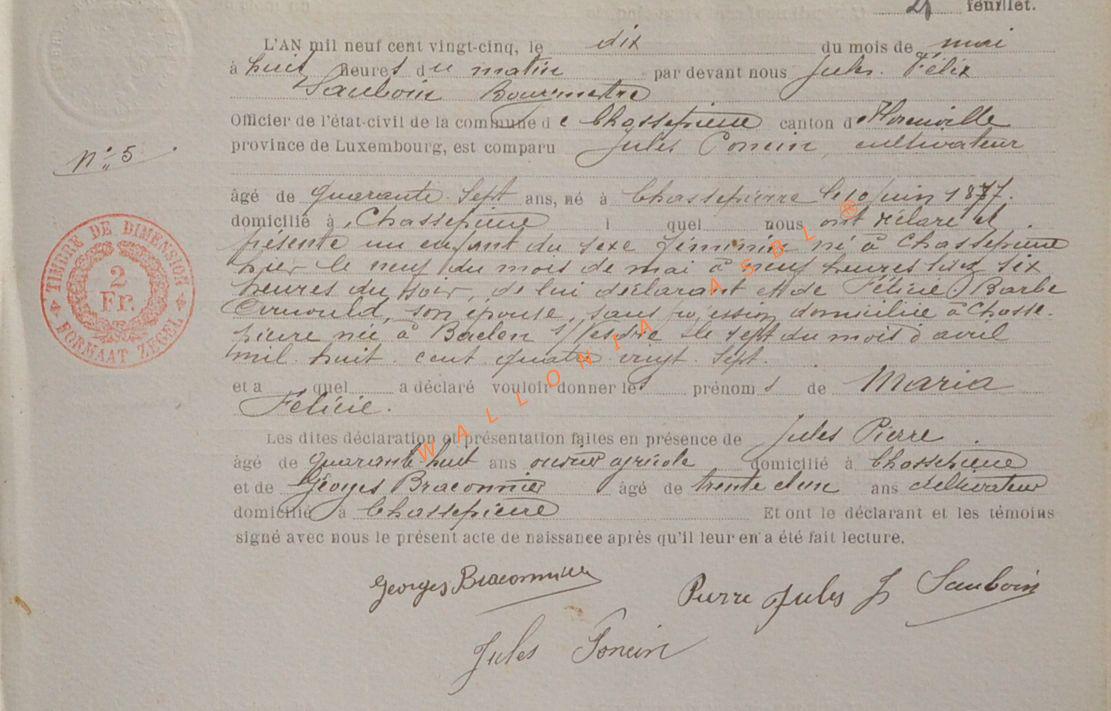 21 feuillet.
L'AN mil neuf cent vingt-cinq, le dix du mois de mai
à huit heures du matin par devant nous Jules Félix
Sauboin Bourgmestre
Officier de l'état-civil de la commune de Chassepierre canton de Florenville
N° 5
province de Luxembourg, est comparu Jules Poncin, cultivateur
âgé de quarante sept ans, né à Chassepierre le 10 juin 1877.
domicilié à Chassepierre l quel nous ont déclaré et
présenté un enfant du sexe féminin né à Chassepierre
hier le neuf du mois de mai à neuf heures six
heures du soir, de lui déclarant et de Félicie Barbe
son épouse, sans profession domiciliée à Chasse-
pierre née à Baelen s/Vesdre le sept du mois d'avril
mil huit cent quatre vingt sept.
et a quel a déclaré vouloir donner les prénoms de Maria
Félicie.
Les dites déclaration et présentation faites en présence de Jules Pierre
âgé de quarante huit ans ouvrier agricole domicilié à Chassepierre
et de Georges Braconnier âgé de trente et un ans cultivateur
domicilié à Chassepierre Et ont le déclarant et les témoins
signé avec nous le présent acte de naissance après qu'il leur en a été fait lecture.
Georges Braconnier
Pierre Jules J Sauboin
Jules Poncin
TIMBRE DE DIMENSION
2
Fr.
FORMAAT ZEGEL
WALLONIA ASBL ®